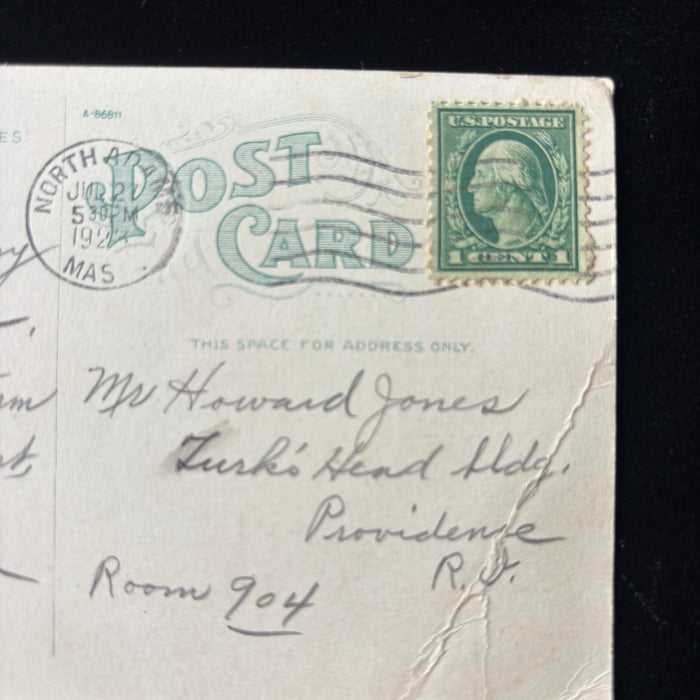 A-86811
ES
POST
CARD
U.S. POSTAGE
1 CENT 1
NORTH ADAMS
5 30 PM
MAS
THIS SPACE FOR ADDRESS ONLY.
Mr Howard Jones
Turk's Head bldg.
Providence
R.I.
Room 904